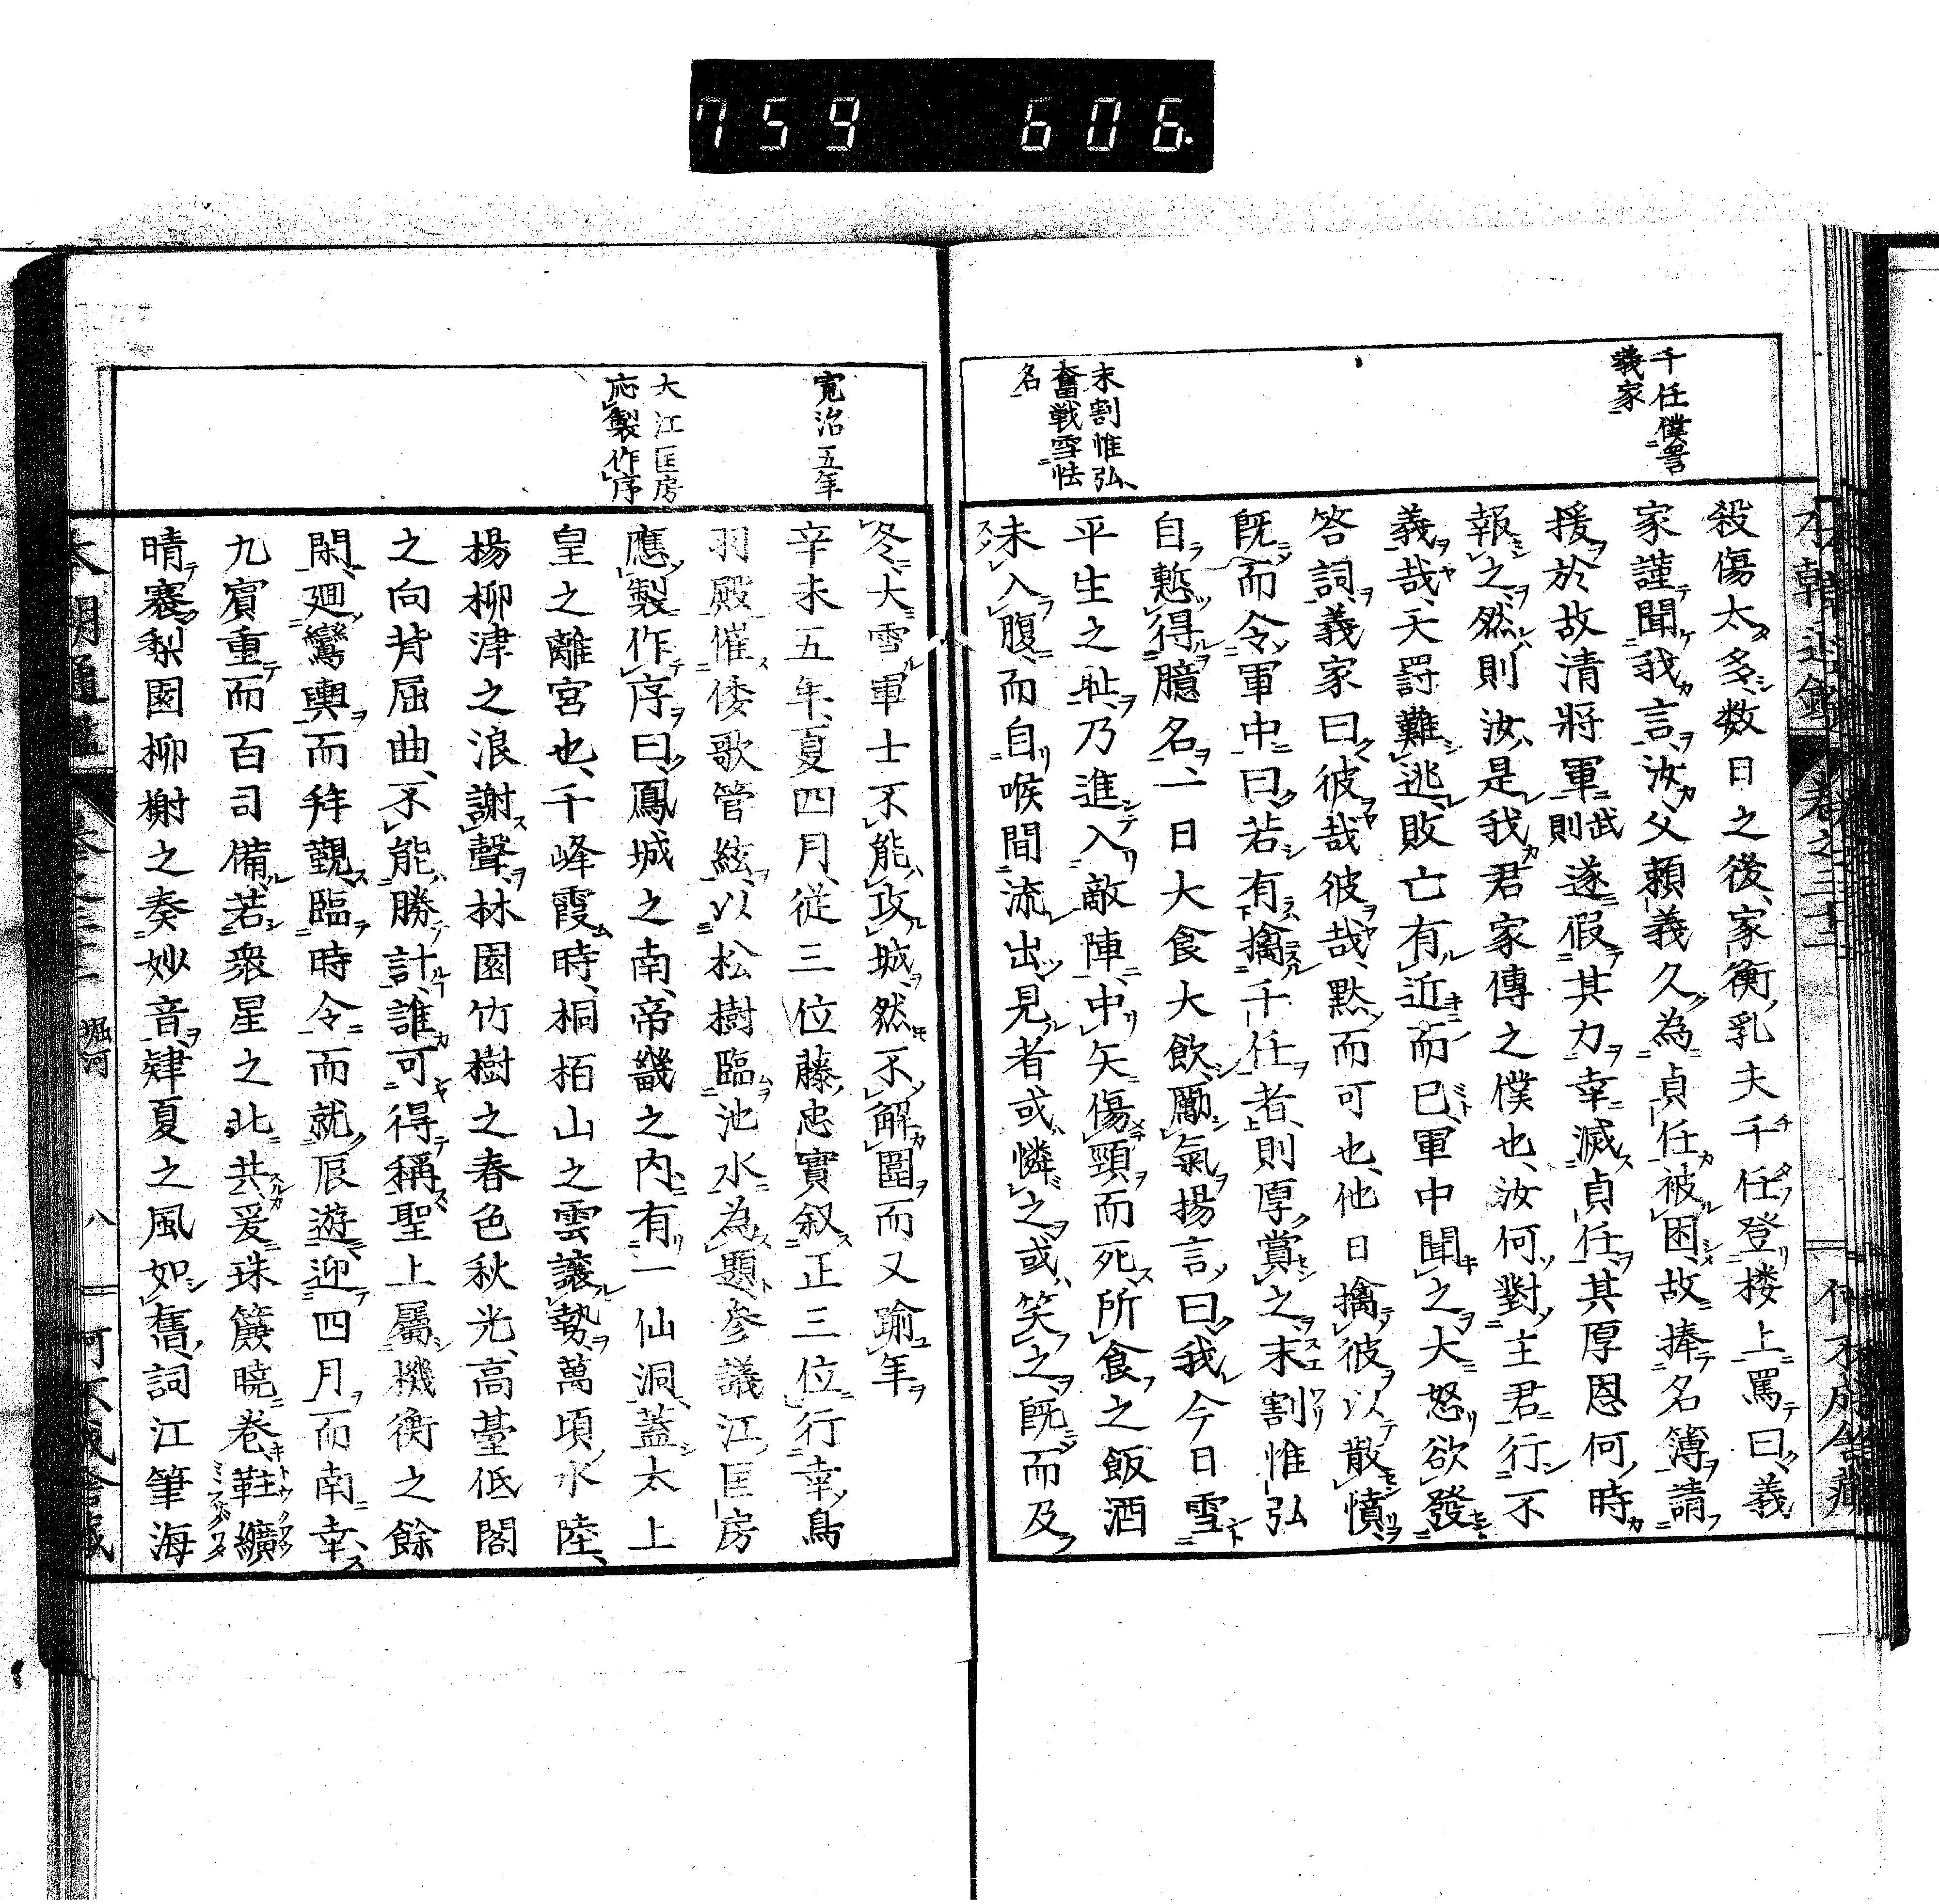 759 606.
千任僕詈
義家
末割惟弘
奮戦雪怯
名
殺傷太多、数日之後、家衡乳夫千任登楼上罵曰、義
家謹聞我言、汝父頼義久為貞任被困、故捧名簿請
援於故清将軍武則遂假其力幸滅貞任、其厚恩何時
報之、然則汝是我君家傳之僕也、汝何對主君行不
義哉、天罸難逃、敗亡有近而已、軍中聞之大怒欲發
答詞、義家曰彼哉彼哉、黙而可也、他日擒彼以散憤
既而令軍中曰、若有擒千任者、則厚賞之、末割惟弘
自慙得臆名、一日大食大飲、勵氣揚言曰、我今日雪
平生之耻、乃進入敵陣、中矢傷頸而死、所食之飯酒
未入腹、而自喉間流出、見者或憐之、或笑之、既而及
寛治五年
大江匡房
応製作序
冬、大雪軍士不能攻城、然不解圍而又踰年
辛未五年、夏四月、従三位藤忠實叙正三位、行幸鳥
羽殿、催倭歌管絃、以松樹臨池水為題、参議江匡房
應製作序曰、鳳城之南、帝畿之内、有一仙洞、蓋太上
皇之離宮也、千峰霞時、桐栢山之雲讓勢、萬頃水陸、
楊柳津之浪謝聲、林園竹樹之春色秋光、高臺低閣
之向背屈曲、不能勝計、誰可得稱、聖上屬機衡之餘
閑、廻鸞輿而拜覲、臨時令而就辰遊、迎四月而南幸、
九賓重而百司備、若衆星之北共、爰珠簾曉巻、黈纊
晴褰、梨園柳榭之奏妙音、肄夏之風如舊、詞江筆海
堀河
八